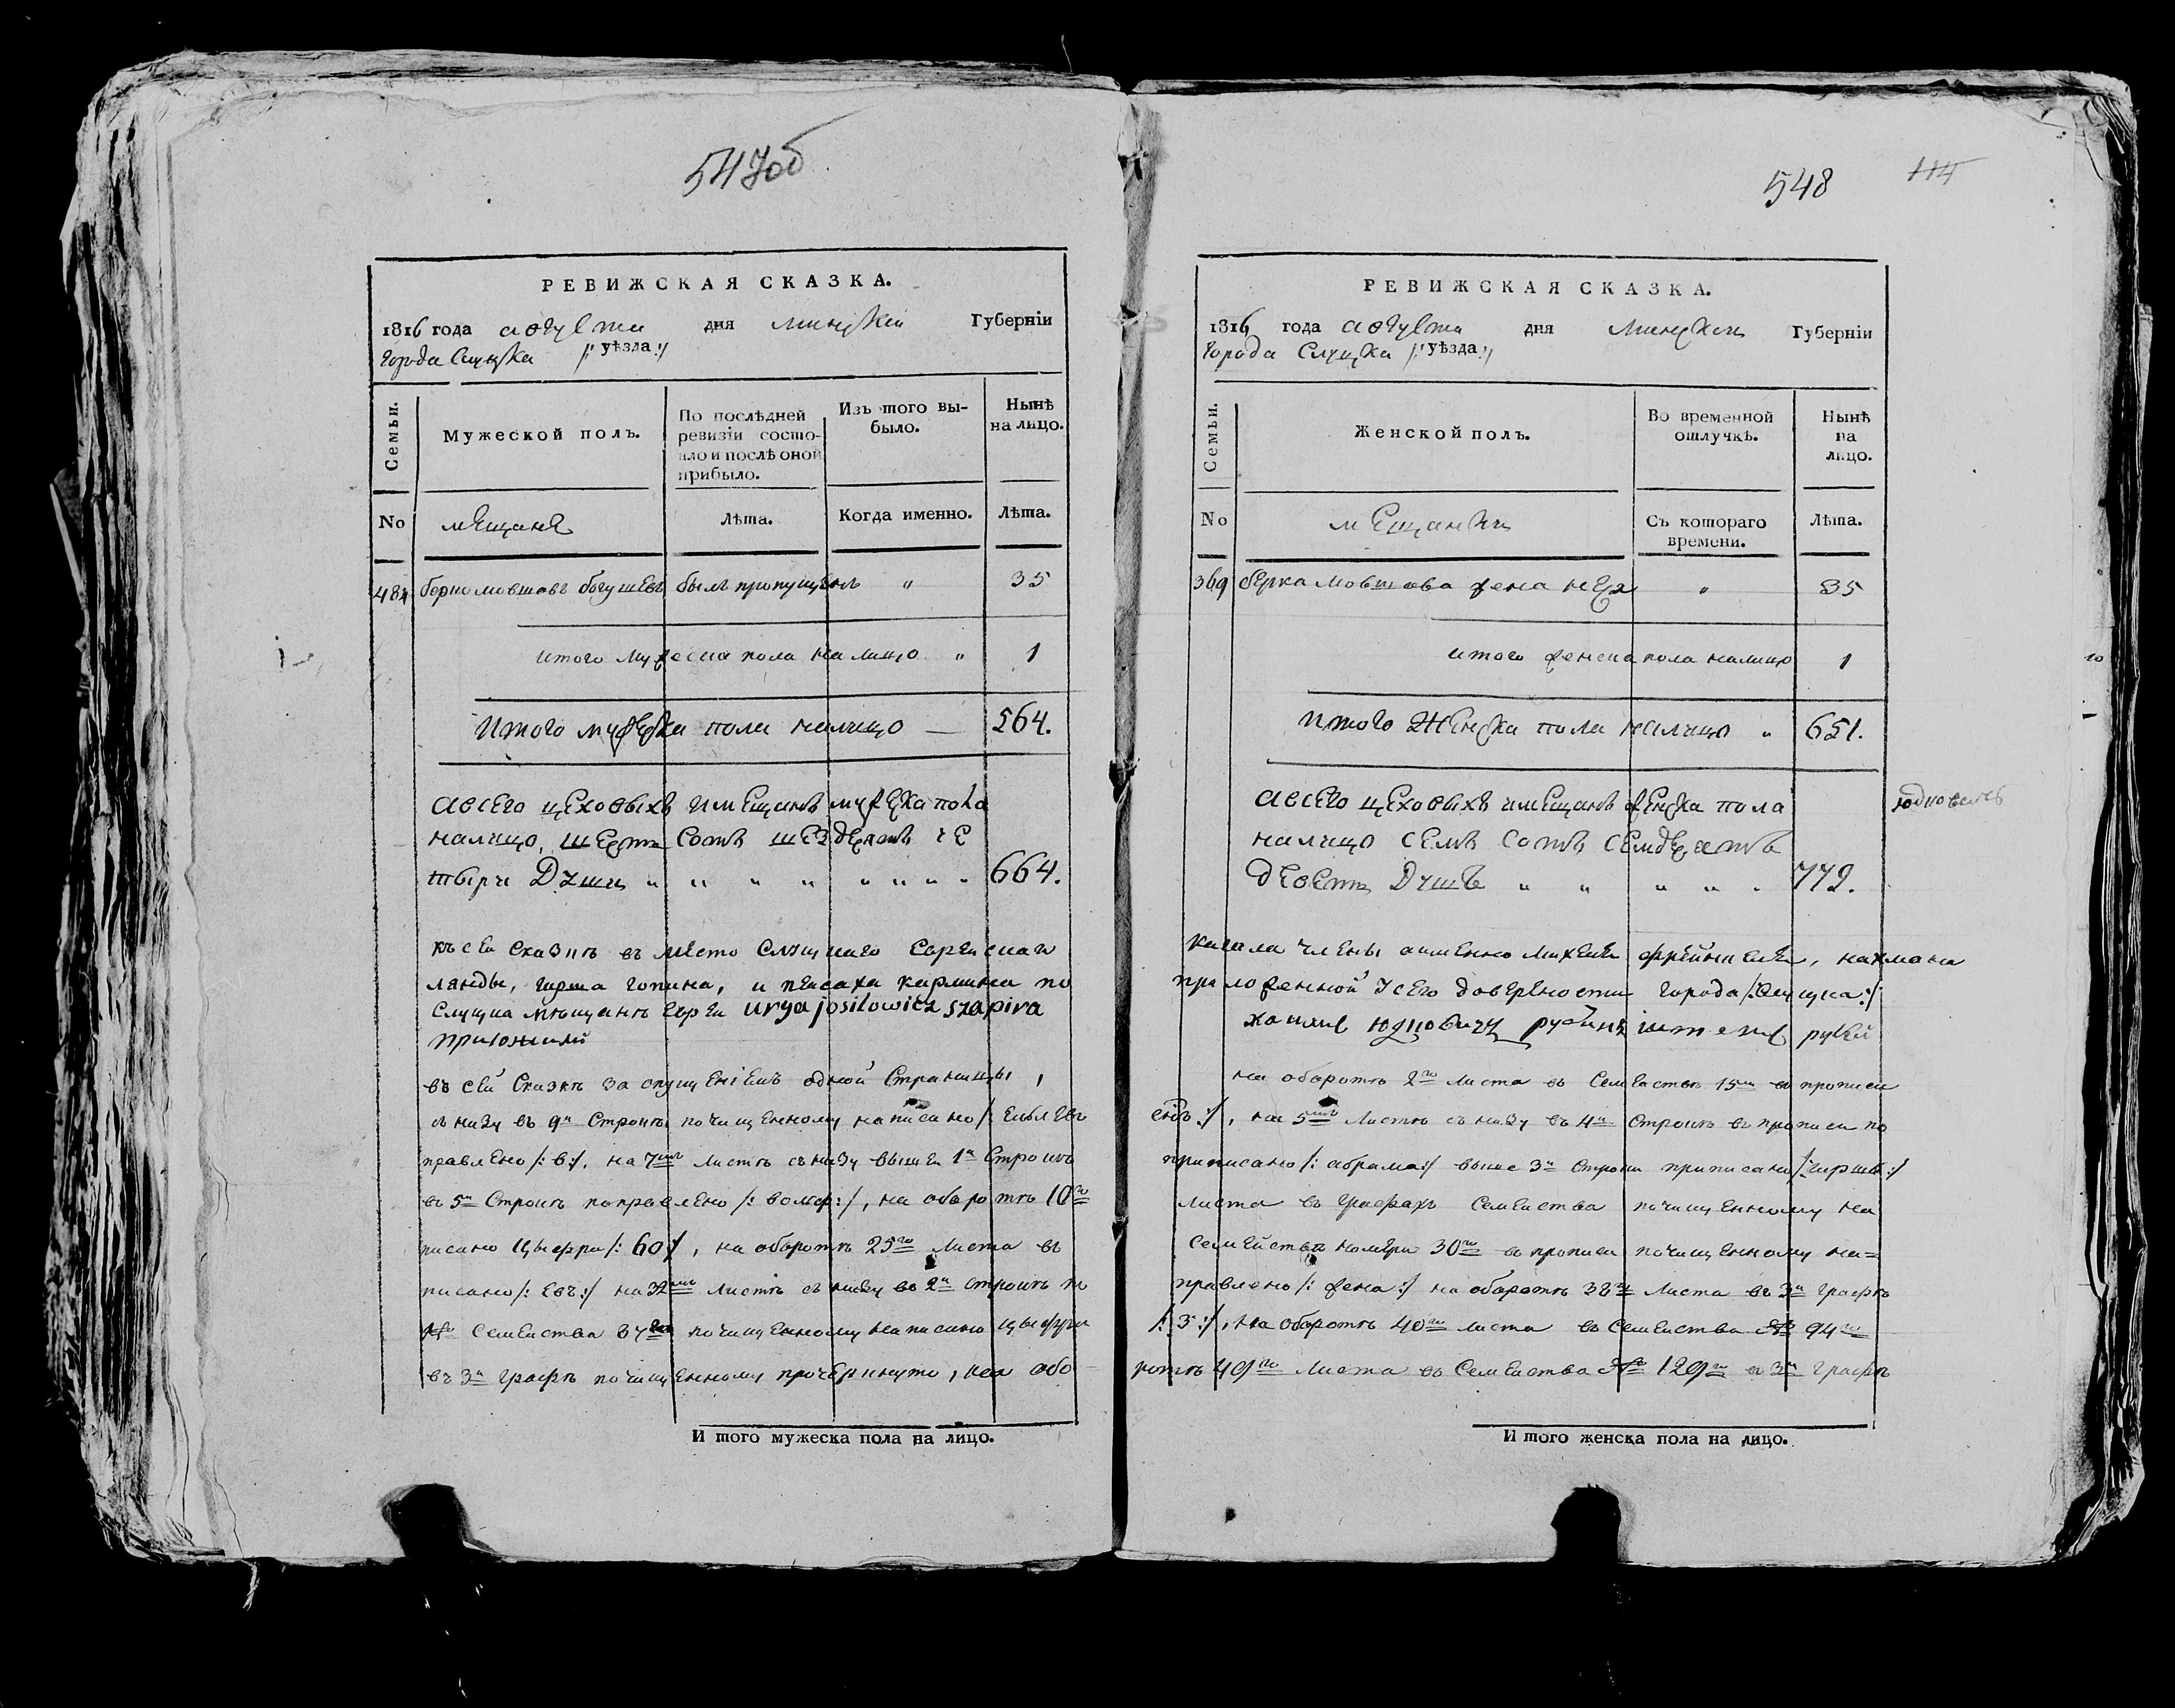 547об
РЕВИЖСКАЯ СКАЗКА.
1816 года августа дня Минской Губерніи
города Слуцка /:уѣзда:/
Семьи.
Мужеской полъ.
По послѣдней
ревизіи состо-
яло и послѣ оной
прибыло.
Изъ того вы-
было.
Нынѣ
на лицо.
No
мещанѣ
Лѣта.
Когда именно.
Лѣта.
былъ пропущенъ " 35
итого мужеска пола на лицо " 1
Итого мужеска пола налицо — 564.
авсего цеховыхъ имещанъ мужека пола
налицо, шестъ сотъ шездесятъ че
тыри Души " " " " " " " " 664.
къ сей сказкѣ въ мѣсто Слуцкаго Еврейскаго
ланды, гирша гопина, и пейсаха кармина по
Слуцка мѣщанъ Еврей urya josilowicz szapira
приложилъ
въ сей Сказкѣ за опущеніемъ одной Страницы,
съ низу въ 9й Строкѣ по чищенному написано /:
правлено /:в:/, на 7мъ листѣ съ низу выше 1й Строки
въ 5й Строкѣ поправлено /: :/, на оборотѣ 10го
писано цыфра /: 60:/, на оборотѣ 25го Листа въ
писано /: Евъ:/ на 32мъ листѣ съ низу во 2й строкѣ по
№ Семейства по чищенному написано цыфра
въ 3й графѣ по чищенному прочеркнуто, на обо
И того мужеска пола на лицо.
548 114
РЕВИЖСКАЯ СКАЗКА.
1816 года августа дня Минской Губерніи
города Слуцка /:уѣзда:/
Семьи.
Женской полъ.
Во временной
отлучкѣ.
Нынѣ
на
лицо.
No
мещанки
Съ котораго
времени.
Лѣта.
369 берка мовшова жена " 35
итого женска пола налицо 1
итого Женска пола налицо " 651.
авсего цеховыхъ имещанъ женска пола
налицо семъ сотъ семдесятъ
деветь Душъ " " " " " 779.
кагала члены аименно михель, нахмана
приложенной усего доверености города /:Слуцка:/
руки
на оборотѣ 2го листа въ Семействѣ 15мъ въ прописи
:/, на 5мъ Листѣ съ низу въ 4й Строкѣ въ прописи по
приписано /: абрама:/ выше 3й Строки приписано /:гирша:/
листа въ графахъ Семейства по чищенному на
семейства номера 30го въ прописи по чищенному на=
правлено /: жена:/ на оборотѣ 38го Листа въ 3й графѣ
/: 3:/, на оборотѣ 40го листа въ Семейства № 94го
ротѣ 49го Листа въ Семейства № 129го въ 3й графѣ
И того женска пола на лицо.